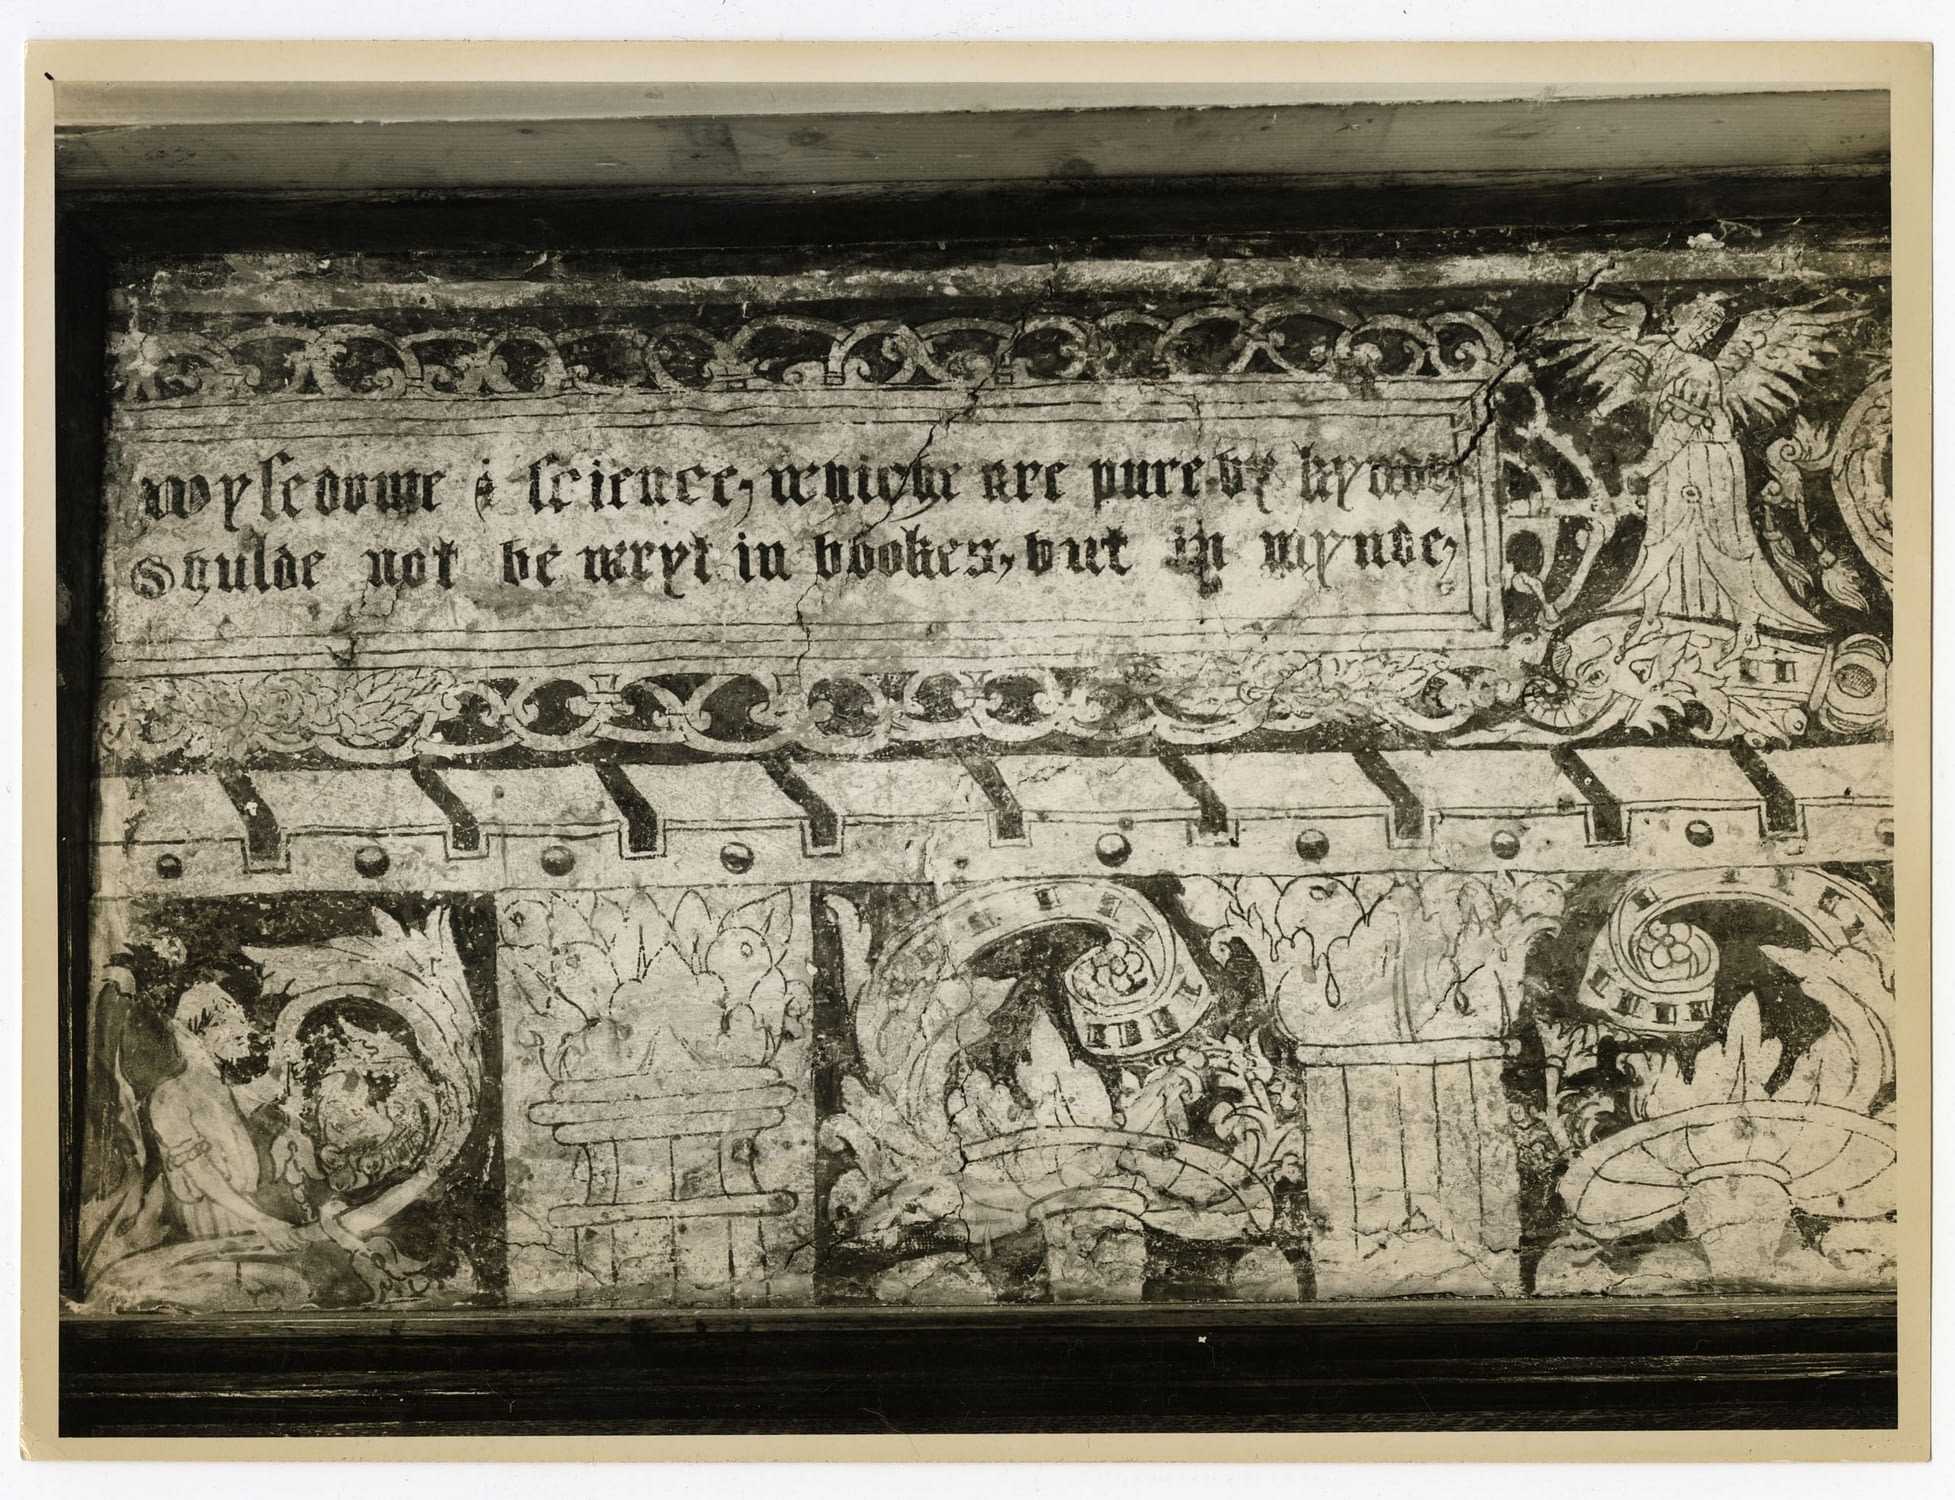 wysedome & science, whiche are pure by kynde,
Shulde not be wryt in bookes, but in mynde,